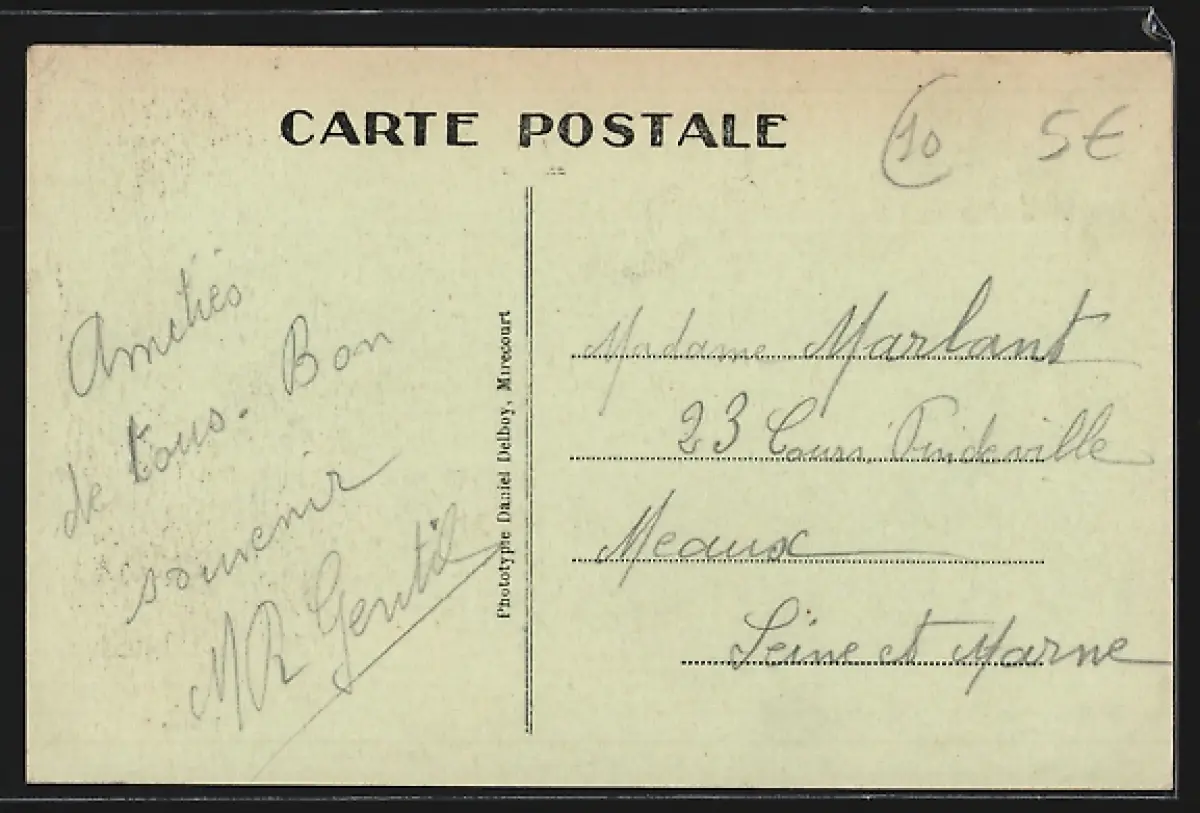 CARTE POSTALE
10
5€
Amitiés
de tous. Bon
souvenir
MR Gentil
Phototypie Daniel Delboy, Mirecourt
Madame Marlant
23 Cours
Meaux
Seine et Marne